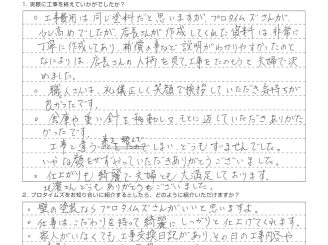 1. 実際に工事を終えていかがでしたか？
○ 工事費用は同じ塗料だと思いますが、プロタイムズさんが、
少し高めでしたが、店長さんが作成してくれた資料は非常に
丁寧に作成してあり、補償の事など説明がわかりやすかったのと
なによりは、店長さんの人柄を見て工事をたのもうと夫婦で決
めました。
○ 職人さんは、礼儀正しく笑顔で挨拶していただき気持ちが
良かったです。
○ 倉庫や重い針を移動しても元に返していただきありがた
かったです。
工事と違う しまい、どうもすいませんでした。
いやな顔もせずやっていただきありがとうございました。
○ 仕上がりも綺麗で夫婦とも大満足しております。
どうもありがとうございました。
2. プロタイムズをお知り合いに紹介するとしたら、どのように紹介いただけますか？
○ 壁の塗装ならプロタイムズさんがいいと思いますよ。
○ 仕事はこだわりを持って綺麗にしっかりと仕上げてくれます。
○ 家人がいなくても、工事交換日記があり、その日の工事内容や